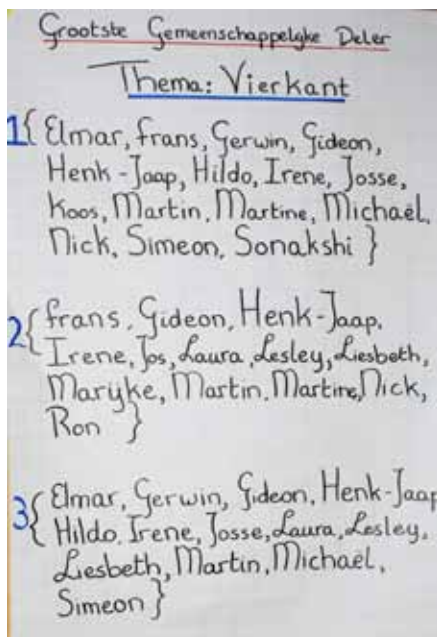 Grootste Gemeenschappelijke Deler
Thema: Vierkant
1{ Elmar, Frans, Gerwin, Gideon,
Henk-Jaap, Hildo, Irene, Josse,
Koos, Martin, Martine, Michaël,
Nick, Simeon, Sonakshi }
2{ Frans, Gideon, Henk-Jaap,
Irene, Jos, Laura, Lesley, Liesbeth,
Marijke, Martin, Martine, Nick,
Ron }
3{ Elmar, Gerwin, Gideon, Henk-Jaap
Hildo, Irene, Josse, Laura, Lesley,
Liesbeth, Martin, Michaël,
Simeon }